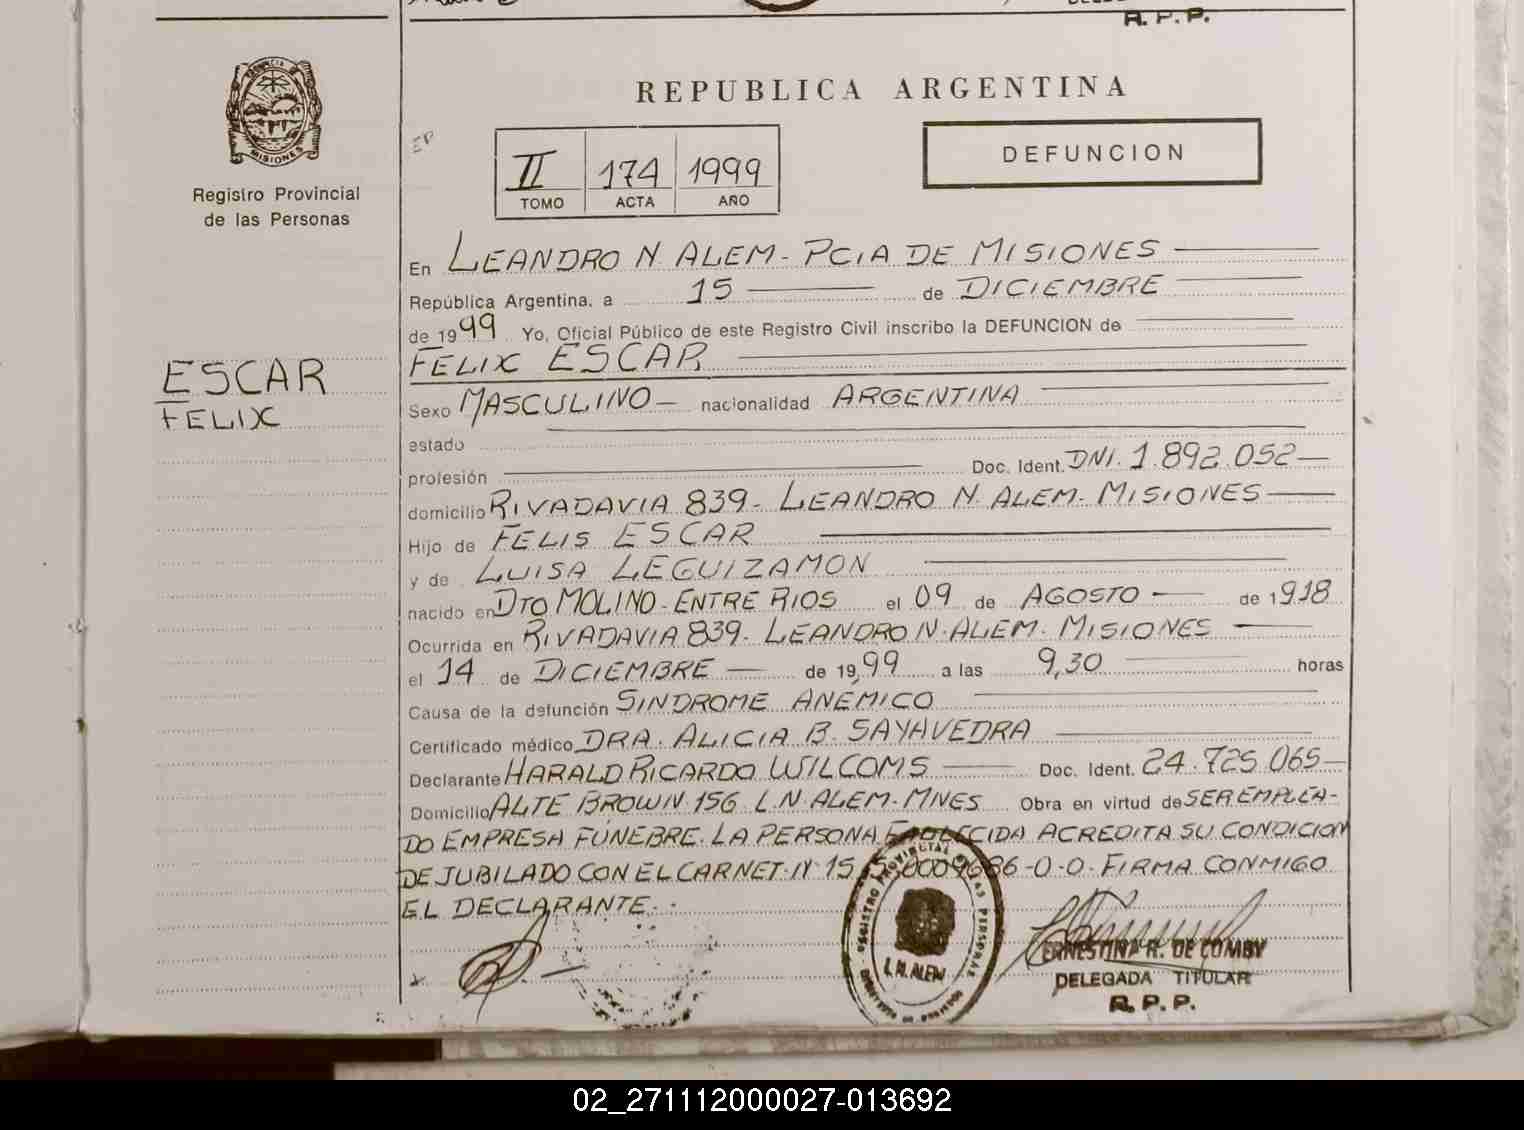 R. P. P.
PROVINCIA DE
MISIONES
Registro Provincial
de las Personas
REPUBLICA ARGENTINA
EP
II 174 1999
TOMO ACTA AÑO
DEFUNCION
En LEANDRO N. ALEM - PCIA DE MISIONES
República Argentina, a 15 de DICIEMBRE
de 1999 Yo, Oficial Público de este Registro Civil inscribo la DEFUNCION de
FELIX ESCAR
ESCAR
FELIX
Sexo MASCULINO - nacionalidad ARGENTINA
estado
profesión Doc. Ident. DNI. 1.892.052
domicilio RIVADAVIA 839 - LEANDRO N. ALEM - MISIONES
Hijo de FELIS ESCAR
y de LUISA LEGUIZAMON
nacido en DTO MOLINO - ENTRE RIOS el 09 de AGOSTO de 1918
Ocurrida en RIVADAVIA 839 - LEANDRO N. ALEM - MISIONES
el 14 de DICIEMBRE de 19,99 a las 9,30 horas
Causa de la defunción SINDROME ANEMICO
Certificado médico DRA. ALICIA B. SAYAVEDRA
Declarante HARALD RICARDO WILCOMS Doc. Ident. 24.725.065
Domicilio ALTE BROWN 156 L.N. ALEM - MNES Obra en virtud de SER EMPLEA-
DO EMPRESA FÚNEBRE. LA PERSONA FALLECIDA ACREDITA SU CONDICION
DE JUBILADO CON EL CARNET. N° 15 -0-0- FIRMA CONMIGO
EL DECLARANTE.
REGISTRO PROVINCIAL DE LAS PERSONAS
L.N. ALEM
ERNESTINA R. DE COMBY
DELEGADA TITULAR
R. P. P.
02_271112000027-013692